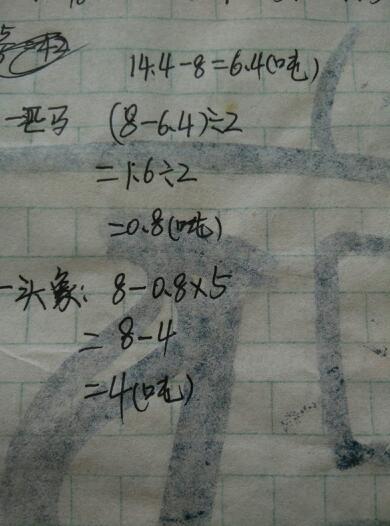 14.4-8=6.4(吨)
一匹马 (8-6.4)÷2
=1.6÷2
=0.8(吨)
一头象: 8-0.8×5
=8-4
=4(吨)